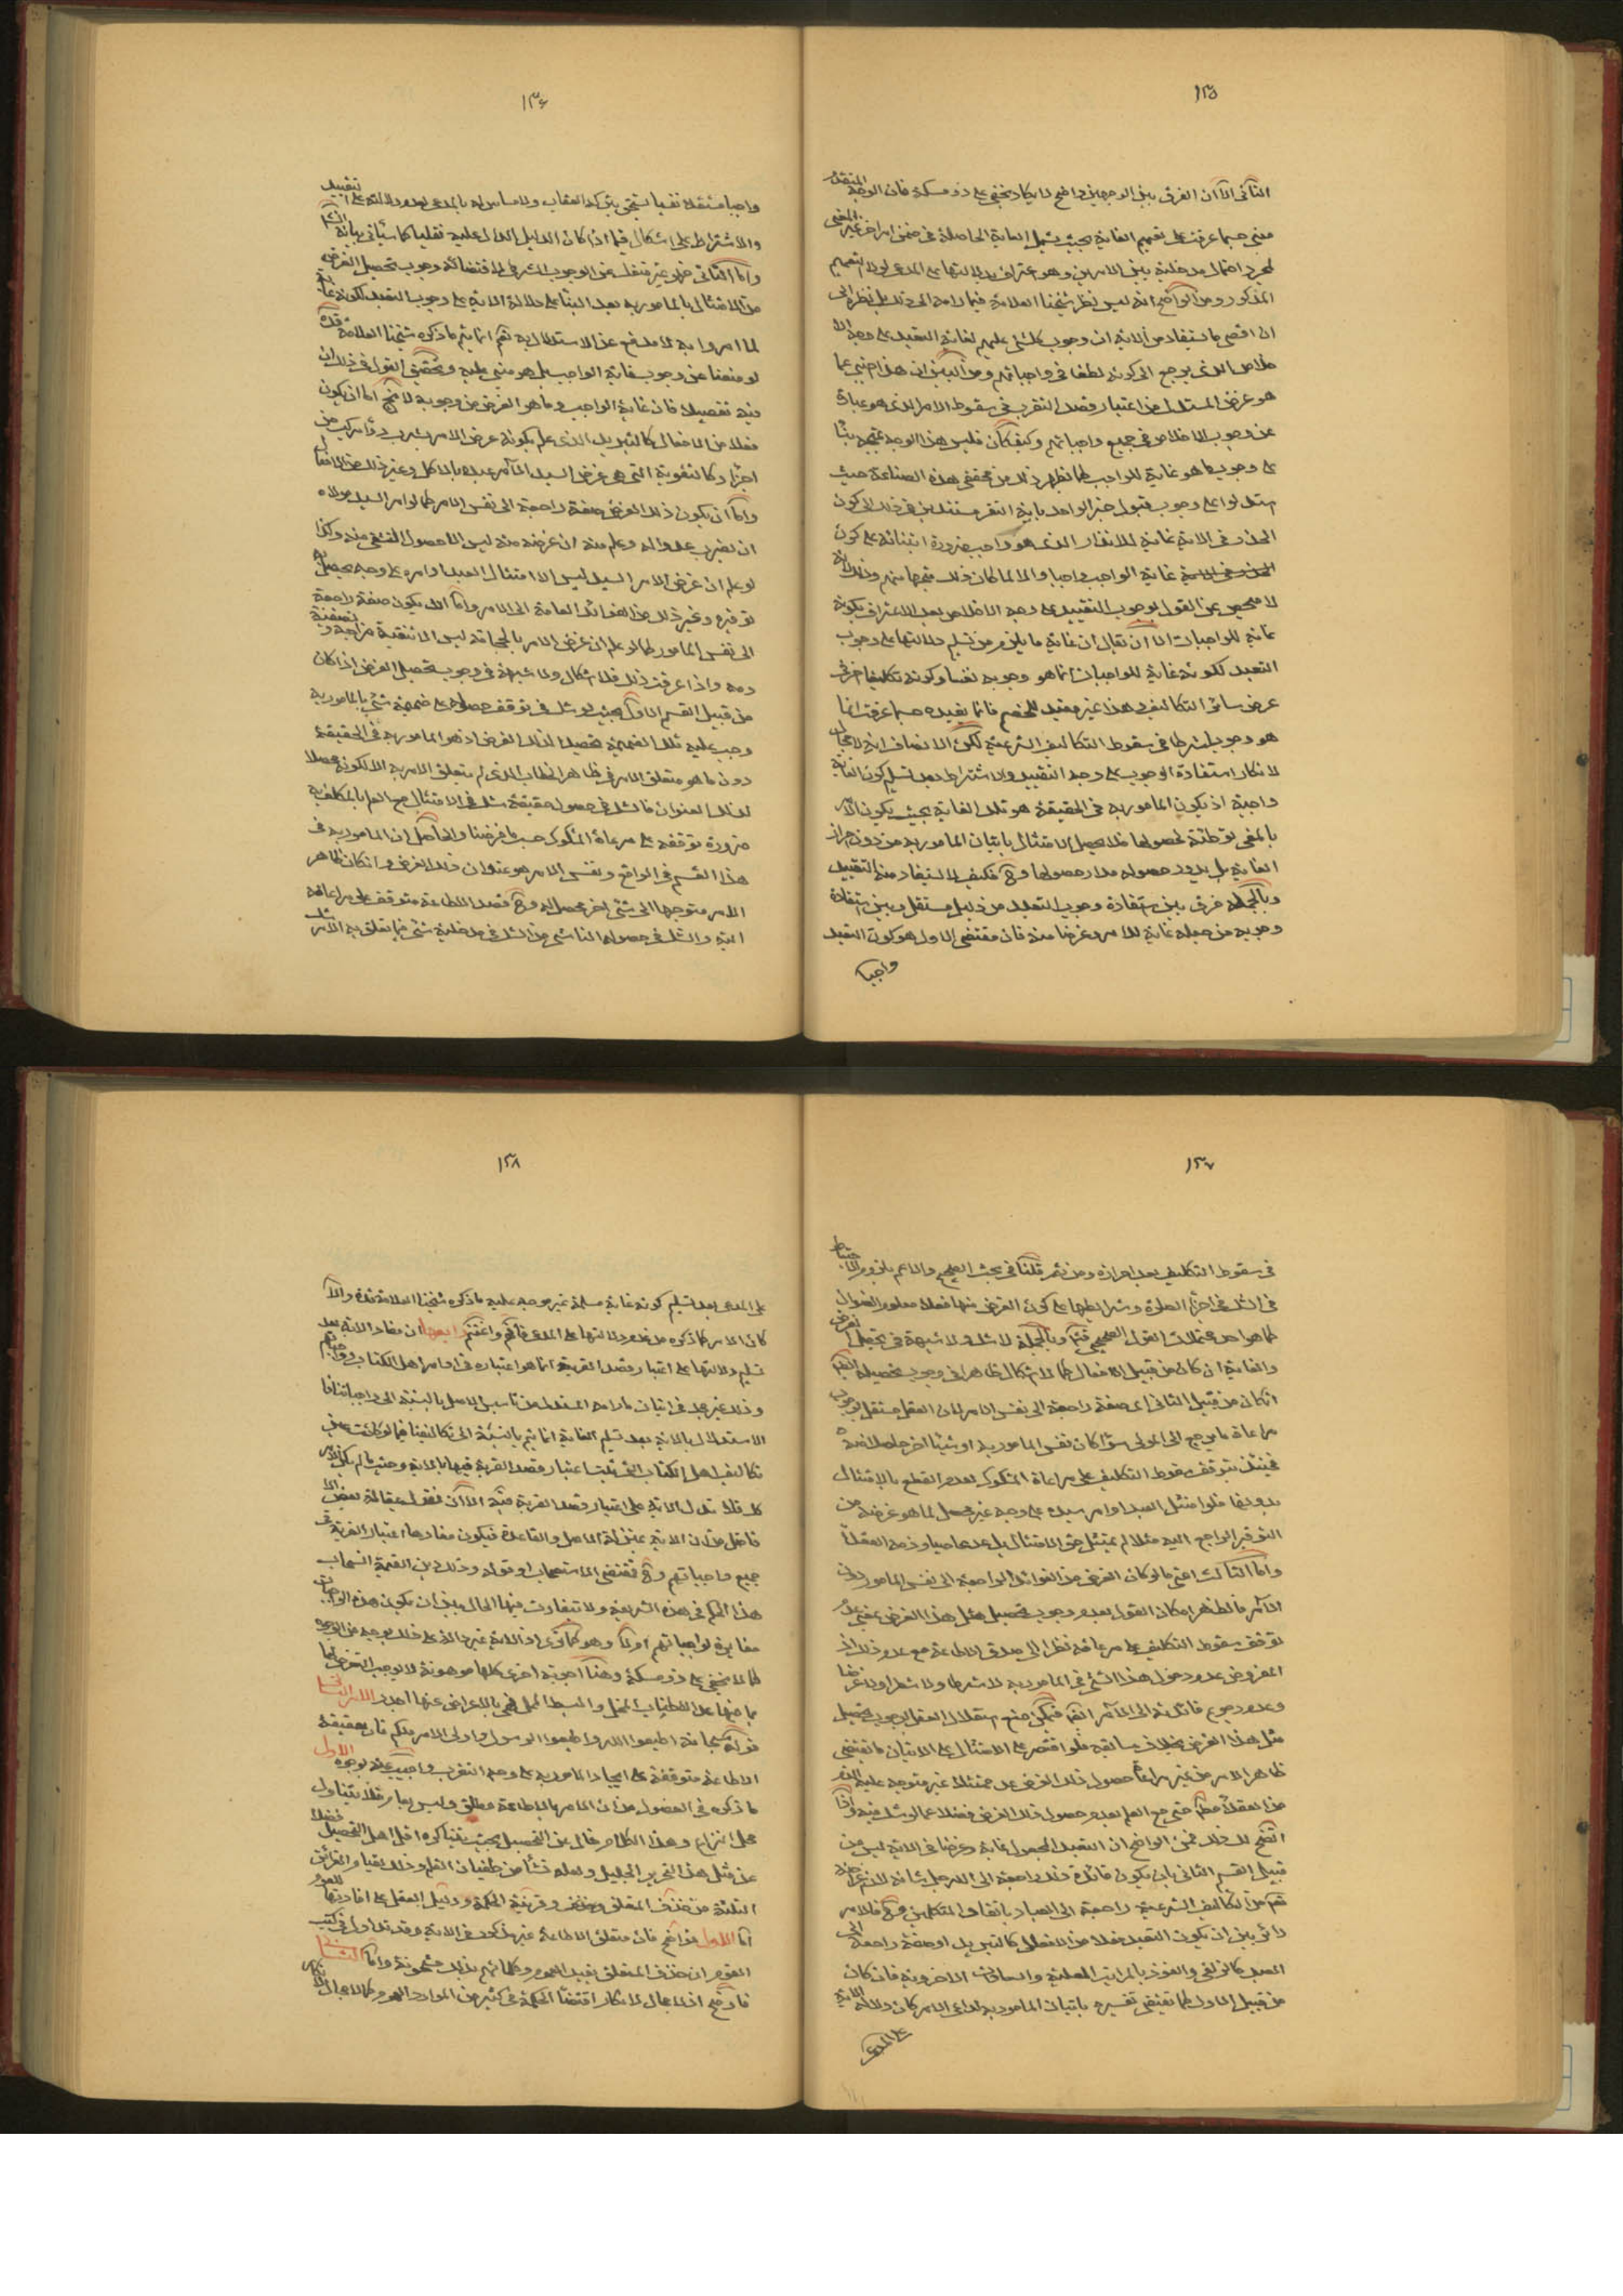 ١٣٥
الثانی الا ان الفرق بین الوجهین واضح لا یکاد یخفی علی ذو مسکة فان الوجه المتقدم
مبنی حسبما عرفت علی تعمیم الغایة بحیث یشمل الغایة الحاصلة فی ضمن امر اخر غیر المغیی
المذکور ومن الواضح انه لیس نظر شیخنا العلامة فیما رامه الی ذلک بل نظره الی
ان اقصی ما یستفاد من الایة ان وجوب کل شئ علیهم لغایة التعبد علی وجه الا
خلاص الذی یرجع الی کونه لطفا فی واجباتهم ومن البین ان هذا اجنبی عما
هو غرض المستدل من اعتبار قصد التقرب فی سقوط الامر الذی هو عبارة
عن وجوب الاخلاص فی جمیع واجباتهم وکیف کان فلیس هذا الوجه بمتجه
علی وجوب ما هو غایة للواجب کما یظهر ذلک من محققی هذه الصناعة حیث
استدلوا علی وجوب قبول خبر الواحد بایة النفر مستندین فی ذلک الی کون
الحذر فی الایة غایة للانذار الذی هو واجب ضرورة ابتنائه علی کون
غایة الواجب واجبا والا لما کان ذلک متجها منهم
لا محیص عن القول بوجوب التقیید علی وجه الاخلاص بعد الاعتراف بکونه
غایة للواجبات الا ان یقال ان غایة ما یلزم من تسلیم دلالتها علی وجوب
التعبد لکونه غایة للواجبات انما هو وجوبه نفسا وکونه تکلیفا اخر فی
عرض سائر التکالیف وهذا غیر مفید للخصم فانما یفیده حسبما عرفت انما
هو وجوبه شرطا فی سقوط التکالیف الشرعیة لکن الانصاف انه لا مجال
لانکار استفادة الوجوب علی وجه التقیید والاشتراط بعد تسلیم کون الغایة
واجبة اذ یکون المامور به فی الحقیقة هو تلک الغایة بحیث یکون الامر
بالمغیی توطئة لحصولها فلا یحصل الامتثال باتیان المامور به من دون احراز
الغایة بل یدور حصوله مدار حصولها وح فکیف لا یستفاد منه التقیید
وبالجملة فرق بین استفادة وجوب التعبد من دلیل مستقل وبین استفادة
وجوبه من جعله غایة للامر وغرضا منه فان مقتضی الاول هو کون التعبد
واجبا
١٣٦
واجبا مستقلا نفسیا یستحق بترکه العقاب ولا مساس له بالمدعی لعدم دلالته علی التقیید
والاشتراط علی اشکال فیما اذا کان الدلیل الدال علیه نقلیا کما سیاتی بیانه
واما الثانی فهو غیر منفک عن الوجوب الشرطی لاقتضائه وجوب تحصیل الغرض
من الامتثال بالمامور به بعد البناء علی دلالة الایة علی وجوب التعبد لکونه غایة
لما امروا به لا مدفع عن الاستدلال به نعم انما یتم ما ذکره شیخنا العلامة قده
لو منعنا عن وجوب غایة الواجب بل هو مبنی علیه وتحقیق القول فی ذلک ان
فیه تفصیلا فان غایة الواجب وما هو الغرض من وجوبه لا یخ اما ان یکون
فعلا من الافعال کالتبرید الذی علم بکونه غرض الامر بشرب دواء مرکب من
اجزاء وکالتقویة التی هی غرض السید الآمر عبده بالاکل وغیر ذلک من الافعال
واما ان یکون ذلک الغرض صفة راجعة الی نفس الامر کما لو امر السید مولاه
ان یضرب عدوا له وعلم منه ان غرضه منه لیس الا حصول التشفی منه وکذا
لو علم ان غرض الامر السید لیس الا امتثال العبد اوامره علی وجه یحصل به
توقیره وغیر ذلک من الفوائد العائدة الی الامر واما ان یکون صفة راجعة
الی نفس المامور کما لو علم ان غرض الامر بالحجامة لیس الا تنقیة مزاجه وتصفیة
دمه واذا عرفت ذلک فلا اشکال ولا شبهة فی وجوب تحصیل الغرض اذا کان
من قبیل القسم الاول بحیث لو شک فی توقف حصوله علی ضمیمة شئ بالمامور به
وجب علیه تلک الضمیمة تحصیلا لذلک الغرض اذ هو المامور به فی الحقیقة
دون ما هو متعلق الامر فی ظاهر الخطاب الذی لم یتعلق الامر به الا لکونه محصلا
لذلک العنوان فالشک فی حصوله حقیقة شک فی الامتثال مع العلم بالمکلف به
ضرورة توقفه علی مراعاة المشکوک حسب ما فرضنا والحاصل ان المامور به فی
هذا القسم فی الواقع ونفس الامر هو عنوان ذلک الغرض وان کان ظاهر
الامر متوجها الی شئ اخر محصل له وح فصدق الاطاعة متوقف علی مراعاته
البتة والشک فی حصوله الناشی من الشک فی مدخلیة شئ فیما تعلق به الامر شک
١٣٧
فی سقوط التکلیف بعد احرازه ومن ثم قلنا فی بحث الصحیح والاعم بلزوم الاحتیاط
فی الشک فی اجزاء الصلوة وشرایطها علی کون الغرض منها فعلا معلوم العنوان
کما هو احد محتملات القول بالصحیح وبالجملة لا شک ولا شبهة فی تحصیل الغرض
والغایة ان کان من قبیل الافعال کما لا اشکال ظاهرا فی وجوب تحصیله ایضا
ان کان من قبیل الثانی ای صفة راجعة الی نفس الامر لان العقل مستقل بوجوب
مراعاة ما یرجع الی المولی سواء کان نفس المامور به او شیئا اخر حاصلا فی ضمنه
فحینئذ یتوقف سقوط التکلیف علی مراعاة المشکوک لعدم القطع بالامتثال
بدونها فلو امتثل العبد اوامر سیده علی وجه غیر محصل لما هو غرضه من
التوقیر الراجع الیه مثلا لم یمتثل حق الامتثال بل عد عاصیا وذمه العقلاء
واما الثالث اعنی ما لو کان الغرض من الفوائد الراجعة الی نفس المامور دون
الآمر فالظاهر امکان القول بعدم وجوب تحصیل مثل هذا الغرض بمعنی عدم
توقف سقوط التکلیف علی مراعاته نظرا الی صدق الاطاعة مع عدم ذلک اذ
المفروض عدم دخول هذا الشئ فی المامور به لا شرطا ولا شطرا ولا غرضا
وعدم رجوع فائدته الی الآمر ایضا فیمکن منع استقلال العقل بوجوب تحصیل
مثل هذا الغرض بخلاف سابقیه فلو اقتصر علی الامتثال علی الاتیان ما یقتضی
ظاهر الامر من غیر مراعاة حصول ذلک الغرض عد ممتثلا غیر متوجه علیه الذم
من العقلاء مطلقا حتی مع العلم بعدم حصول ذلک الغرض فضلا عما لو شک فیه واذا
اتضح لک ذلک فمن الواضح ان التعبد المجعول غایة وغرضا فی الایة لیس من
قبیل القسم الثانی بان یکون فائدة ذلک راجعة الی الله جل شانه
من التکالیف الشرعیة راجعة الی العباد باتفاق المتکلمین وح فالامر
دائر بین ان یکون التعبد فعلا من الافعال کالتبرید او صفة راجعة الی
العبد کالزلفی والفوز بالمراتب العلیة والسعادات الاخرویة فان کان
من قبیل الاول کما یقتضی تفسیره باتیان المامور به لداعی الامر کان دلالة الایة
علی المدعی
١٣٨
علی المدعی بعد تسلیم کونه غایة مسلمة غیر متوجه علیه ما ذکره شیخنا العلامة قده والا
کان الامر کما ذکره من عدم دلالتها علی المدعی فافهم واغتنم رابعها ان مفاد الایة بعد
تسلیم دلالتها علی اعتبار قصد القربة انما هو اعتباره فی اوامر اهل الکتاب وواجباتهم
وذلک غیر مجد فی اثبات ما رامه المستدل من تاسیس الاصل بالنسبة الی واجباتنا فان
الاستدلال بالایة بعد تسلیم الغایة انما یتم بالنسبة الی تکالیفنا فیما لو کانت عین
تکالیف اهل الکتاب التی ثبت اعتبار قصد القربة فیها بالایة وحیث لم یکن الامر
کذلک فلا تدل الایة علی اعتبار قصد القربة فیه الا ان نقول بمقالة بعض الا
فاضل من ان الایة بمنزلة الاصل والقاعدة فیکون مفادها اعتبار القربة فی
جمیع واجباتهم وح فمقتضی الاستصحاب او قوله وذلک دین القیمة انسحاب
هذا الحکم فی هذه الشریعة ولا تتفاوت فیها الحال بین ان یکون هذه الواجبات
مغایرة لواجباتهم او لا وهو کما تری اذ الایة غیر دالة علی ذلک بوجه من الوجوه
کما لا یخفی علی ذو مسکة وهنا اجوبة اخری کلها موهونة لا یوجب التعرض لها
بما فیها عدا الاطناب الممل والبسط المخل فهی بالاعراض عنها اجدر الامر الثانی
قوله سبحانه اطیعوا الله واطیعوا الرسول واولی الامر منکم فان حقیقة
الاطاعة متوقفة علی ایجاد المامور به علی وجه التقرب واجیب عنه بوجوه الاول
ما ذکره فی الفصول من ان الامر بالاطاعة مطلق ولیس بعام فلا یتناول
محل النزاع وهذا الکلام خال عن التحصیل بحیث یتباکره اقل اهل التحصیل فضلا
عن مثل هذا النحریر الجلیل ولعله نشأ من طغیان القلم وذلک لقیام القرائن
الثلثة من حذف المتعلق وقرینة الحکمة ودلیل العقل علی افادتها للعموم
اما الاول فواضح فان متعلق الاطاعة غیر مذکور فی الایة وقد تداول فی کتب
القوم ان حذف المتعلق یفید العموم وکلماتهم بذلک مشحونة واما الثانی
فاوضح اذ لا مجال لانکار اقتضاء الحکمة فی کثیر من الموارد العموم کما لا مجال لانکار